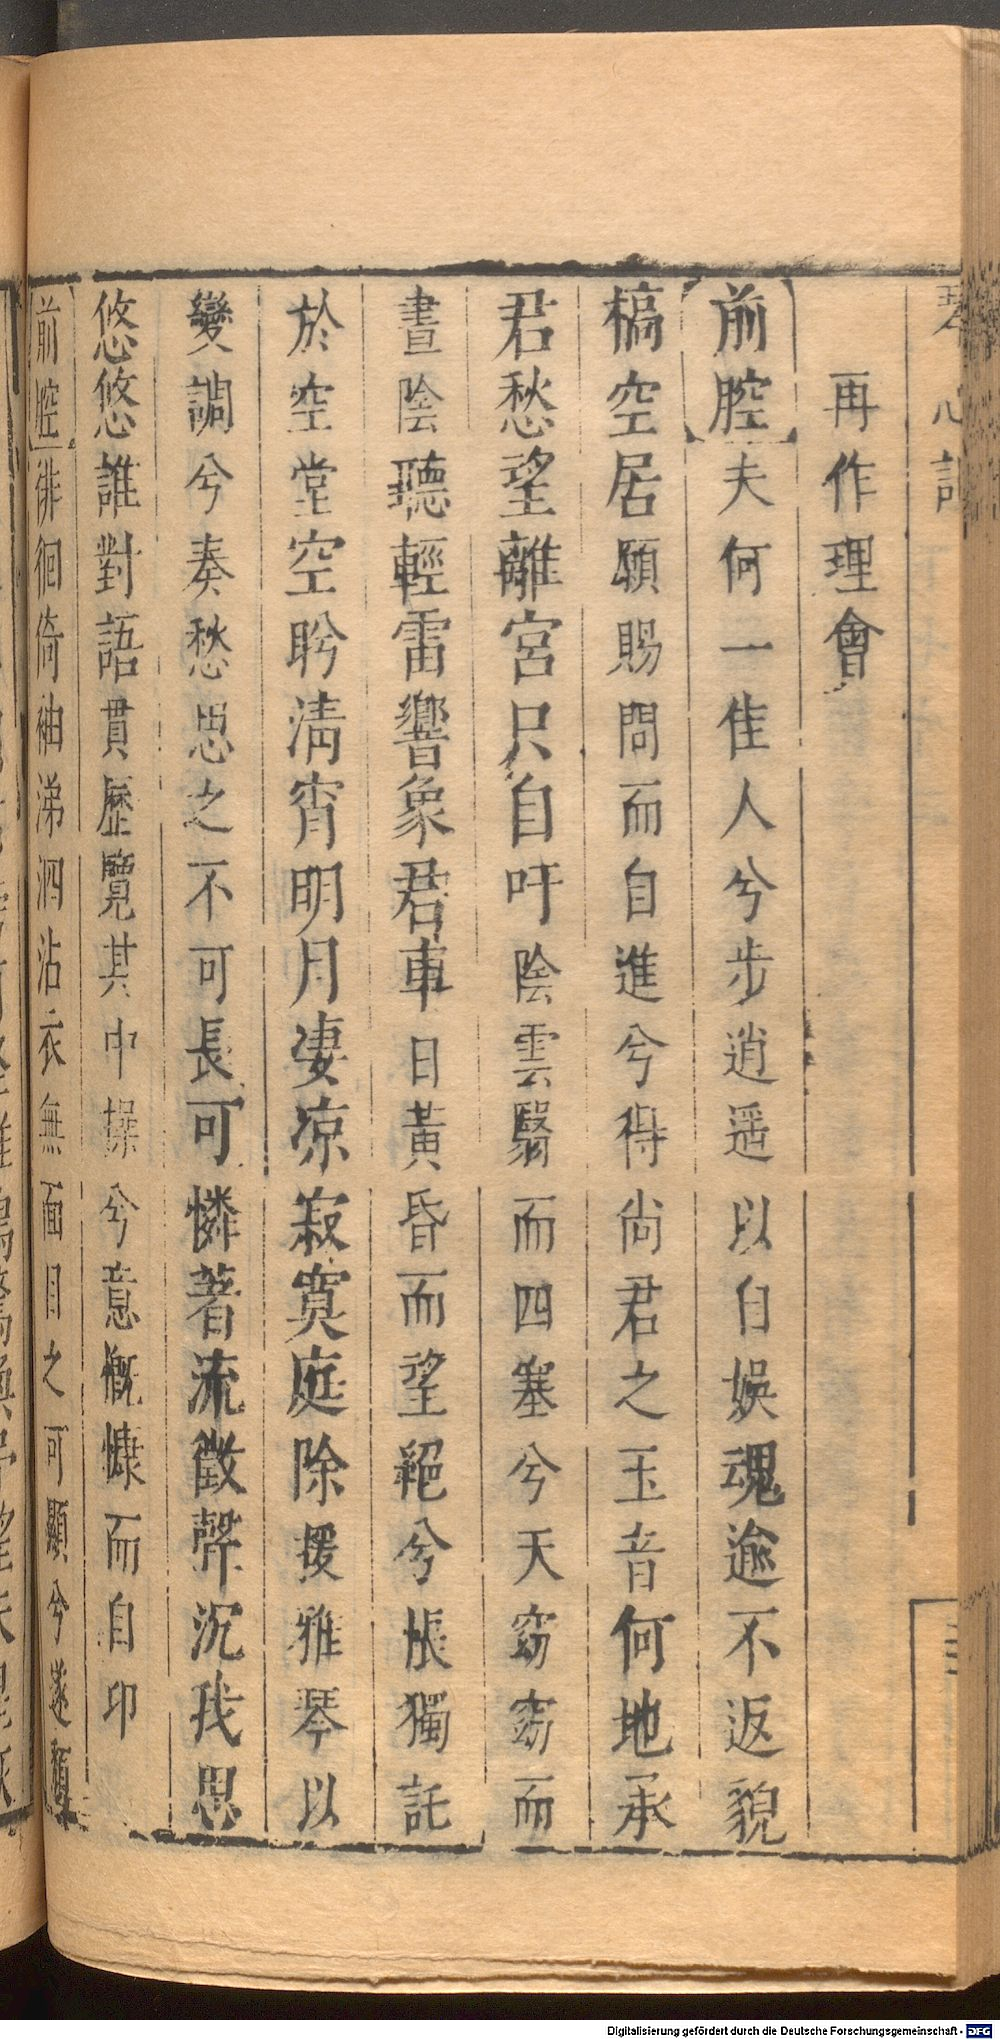 琴心記
再作理會
前腔夫何一佳人兮步逍遥以自娛魂逾不返貌
槁空居願賜問而自進兮得尚君之玉音何地承
君愁望離宮只自吁陰雲翳而四塞兮天窈窈而
晝陰聽輕雷響象君車日黃昏而望絕兮悵獨託
於空堂空盻清宵明月凄凉寂寞庭除援雅琴以
變調兮奏愁思之不可長可憐著流徵聲沉我思
悠悠誰對語貫歷覽其中操兮意慨慷而自卬
前腔徘徊倚袖涕泗沾衣無面目之可顯兮遂頹
Digitalisierung gefördert durch die Deutsche Forschungsgemeinschaft - DFG